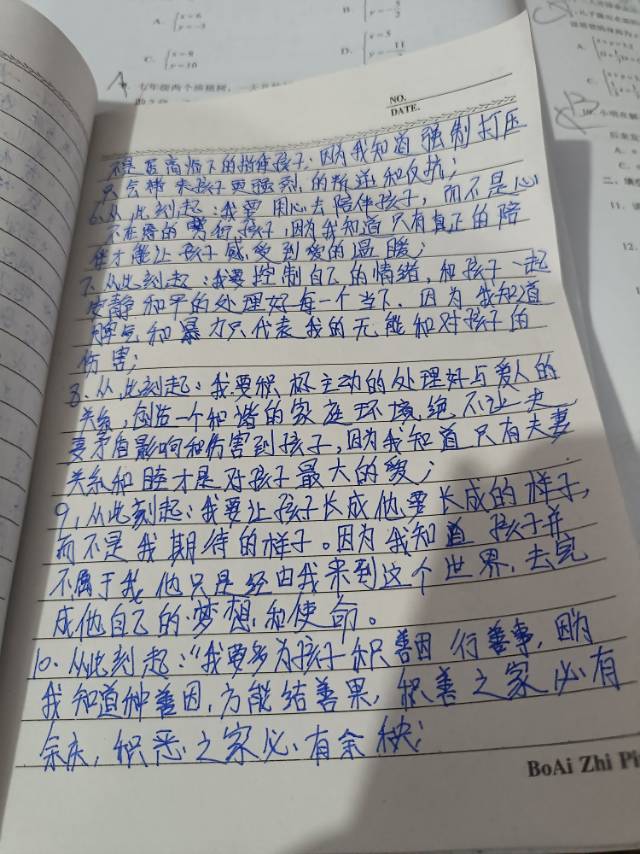 A.
x=6
y=-3
B.
y=-5/2
C.
x=8
y=10
D.
x=5
y=-11
七年级两个班植树，一天共
NO.
DATE.
不是居高临下的指使孩子，因为我知道强制打压
只会带来孩子更强烈的叛逆和反抗；
6.从此刻起：我要用心去陪伴孩子，而不是心
不在焉的敷衍孩子，因为我知道只有真正的陪
伴才能让孩子感受到爱的温暖；
7.从此刻起：我要控制自己的情绪，和孩子一起
安静和平的处理好每一个当下，因为我知道
脾气和暴力只代表我的无能和对孩子的
伤害；
8.从此刻起：我要积极主动的处理好与爱人的
关系，创造一个和谐的家庭环境，绝不让夫
妻矛盾影响和伤害到孩子，因为我知道只有夫妻
关系和睦才是对孩子最大的爱；
9.从此刻起：我要让孩子长成他要长成的样子，
而不是我期待的样子。因为我知道孩子并
不属于我，他只是经由我来到这个世界，去完
成他自己的梦想和使命。
10.从此刻起：“我要多为孩子积善因行善事，因为
我知道种善因，方能结善果，积善之家必有
余庆，积恶之家必有余殃；
BoAi Zhi Pi
11.
12.